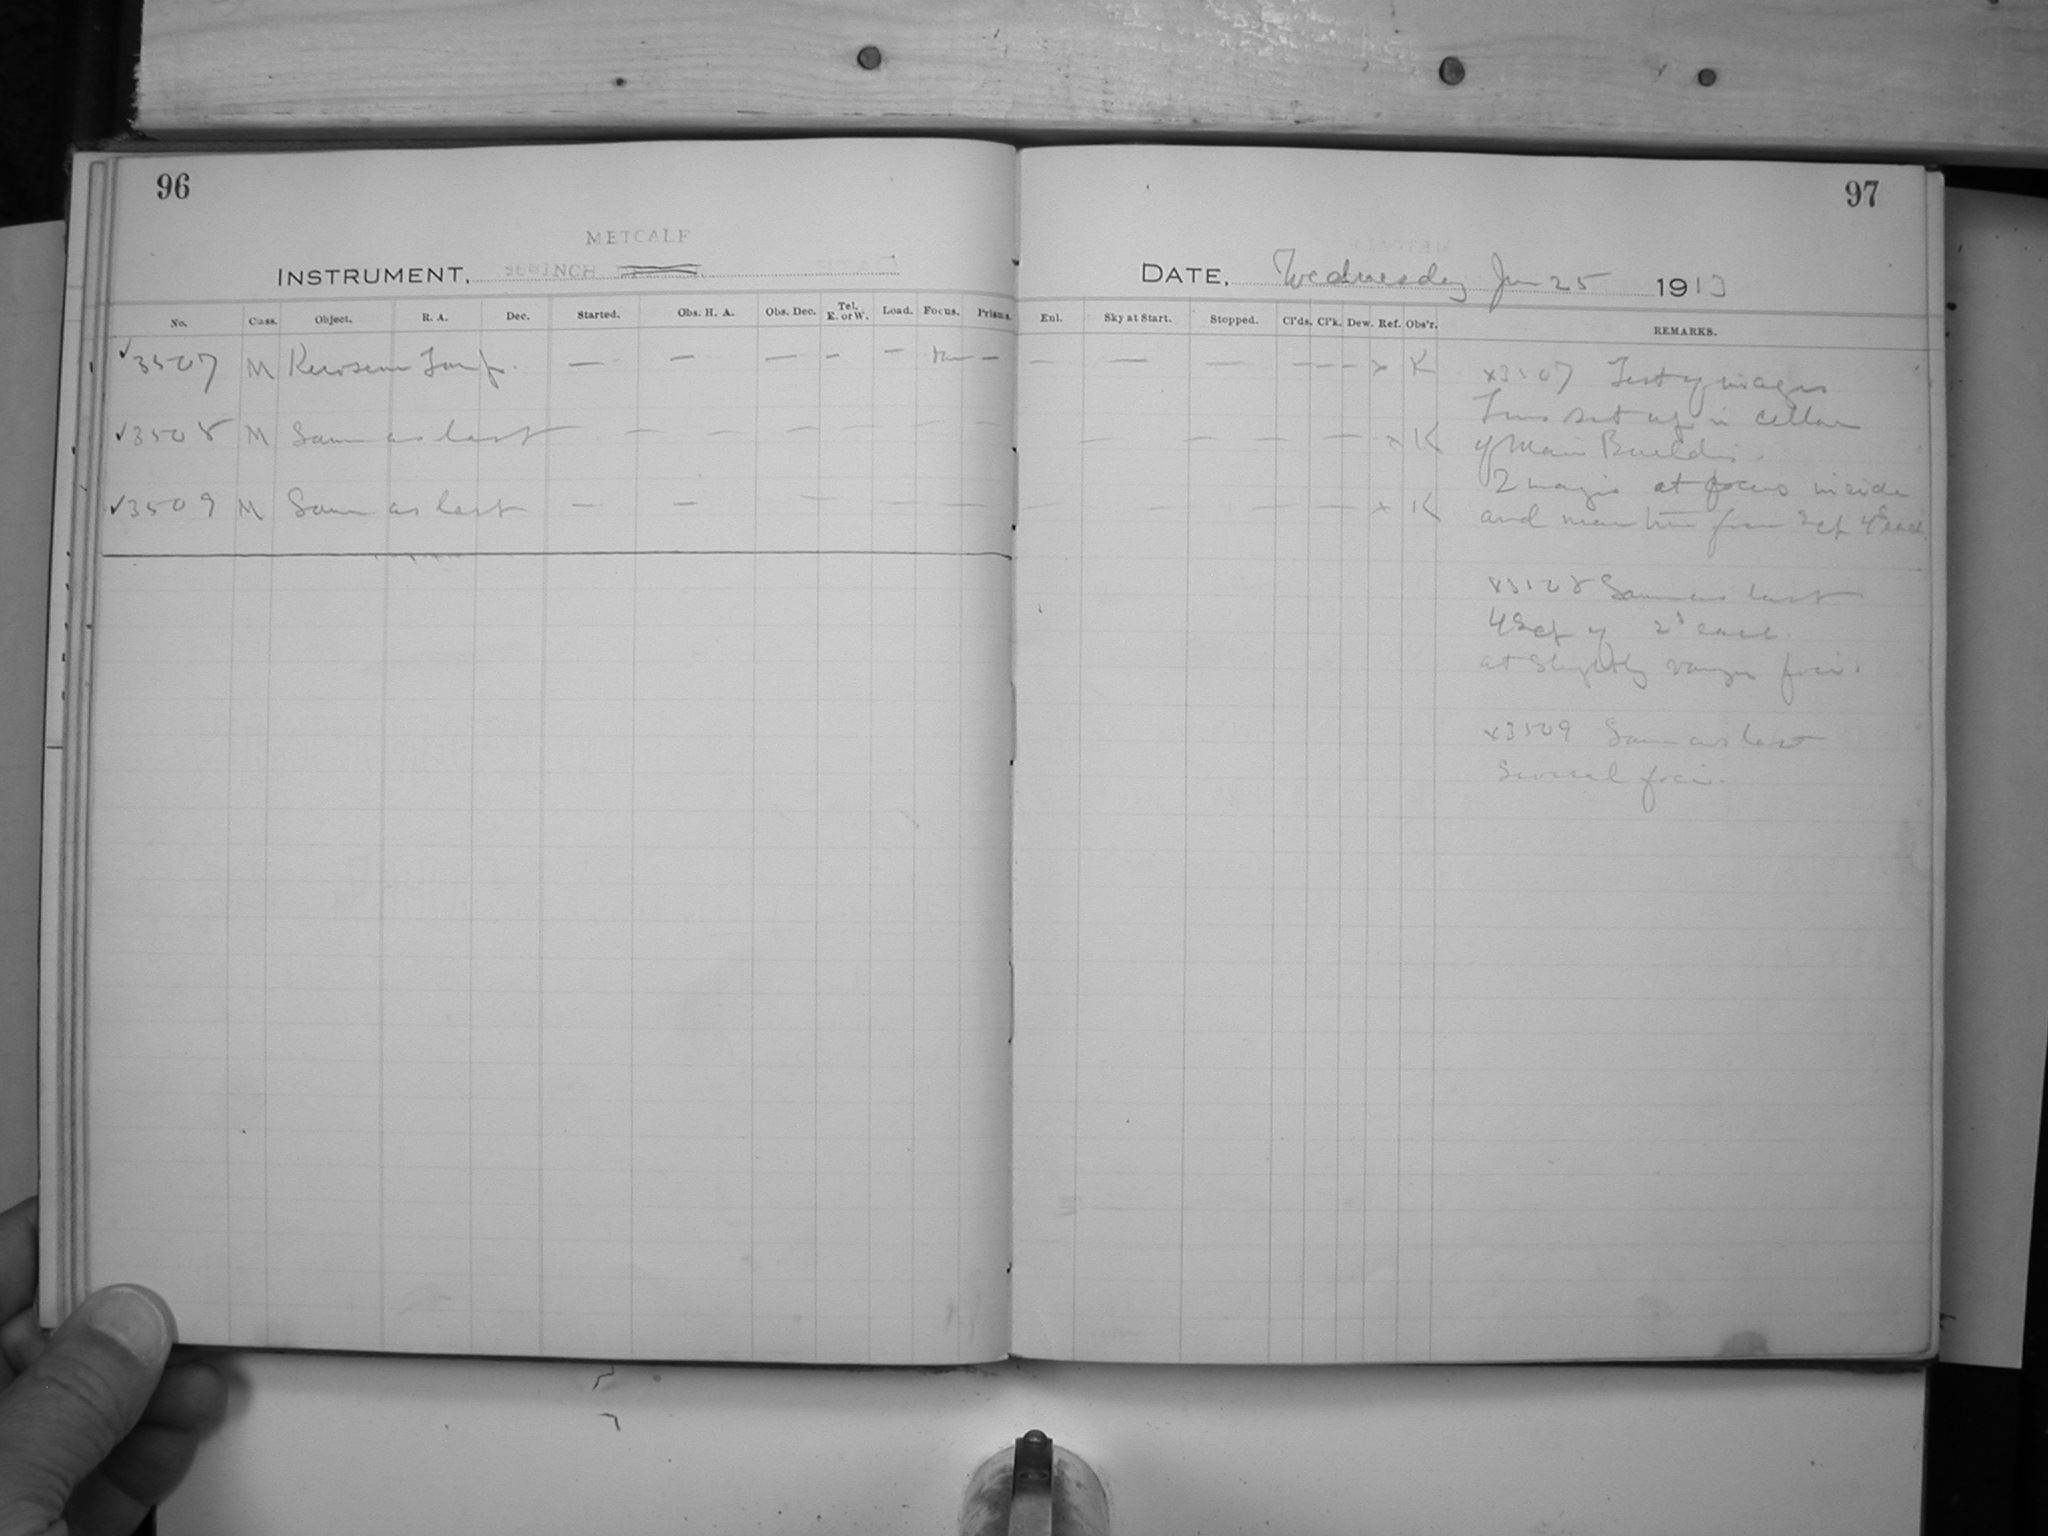 96
METCALF
INSTRUMENT, INCH
No. Class. Object. R. A. Dec. Started. Obs. H. A. Obs. Dec. Tel. E. or W. Load. Focus. Prisms.
✓3507 M Kerosene Lamp. — — — — — —
✓3508 M Same as last — — — — — —
✓3509 M Same as last — — — — —
97
DATE, Wednesday Jun 25 1913
Enl. Sky at Start. Stopped. Cl'ds. Cl'k. Dew. Ref. Obs'r. REMARKS.
— — — — — — x K
— — — — x K
— — — — — x K
x3507 Test of images
Lens set up in cellar
of Main Building.
2 images at focus inside
and
x3508 Same as last
4 Exp of 2s each.
at slightly foci.
x3509 Same as last
Several foci.